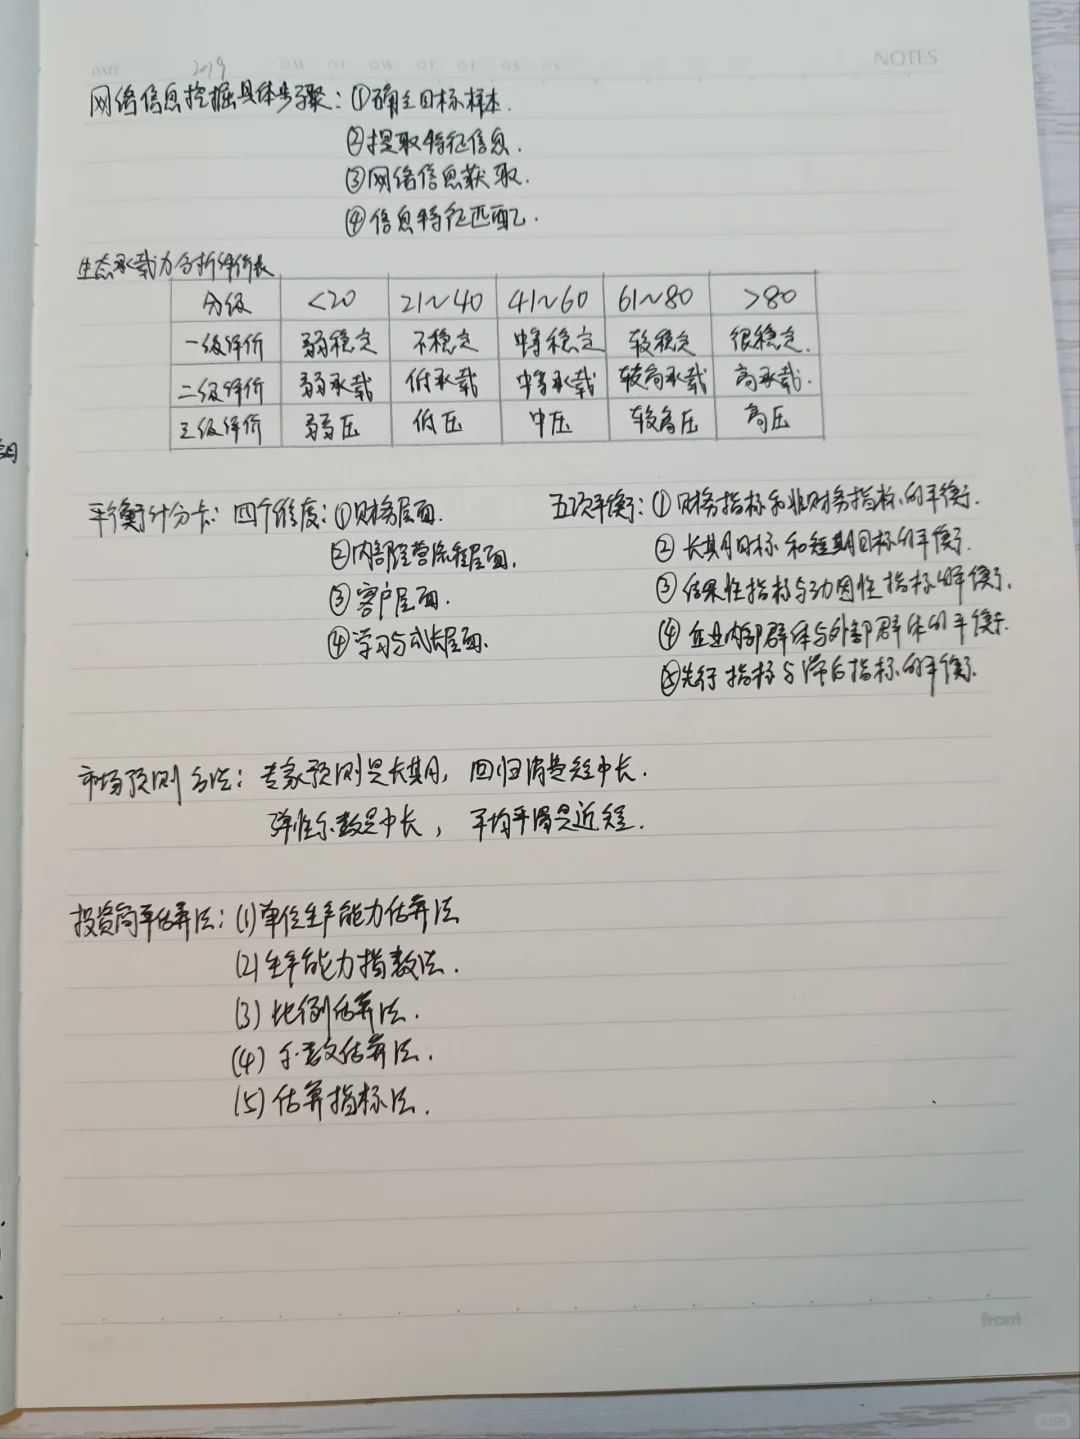 DATE
2019
NOTES
网络信息挖掘具体步骤：①确立目标样本.
②提取特征信息.
③网络信息获取.
④信息特征匹配.
生态承载力分析评价表
分级 <20 21~40 41~60 61~80 >80
一级评价 弱稳定 不稳定 中等稳定 较稳定 很稳定.
二级评价 弱承载 低承载 中等承载 较高承载 高承载.
三级评价 弱压 低压 中压 较高压 高压
平衡计分卡：四个维度：①财务层面. 五项平衡：①财务指标和非财务指标的平衡.
②内部经营流程层面. ②长期目标和短期目标的平衡.
③客户层面. ③结果性指标与动因性指标的平衡.
④学习与成长层面. ④企业内部群体与外部群体的平衡.
⑤先行指标与滞后指标的平衡.
市场预测方法：专家预测是长期，回归消费短中长.
弹性系数是中长，平均平滑是近短.
投资简单估算法：(1)单位生产能力估算法
(2)生产能力指数法.
(3)比例估算法.
(4)系数估算法.
(5)估算指标法.
front